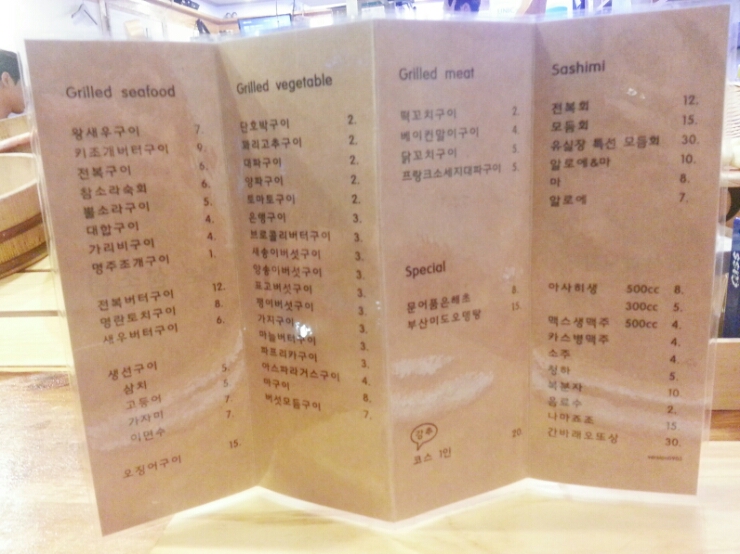 Grilled seafood
왕새우구이 7.
키조개버터구이 9.
전복구이 6.
참소라숙회 6.
뿔소라구이 5.
대합구이 4.
가리비구이 4.
명주조개구이 1.
전복버터구이 12.
명란토치구이 8.
새우버터구이 6.
생선구이
삼치 5.
고등어 5.
가자미 7.
이면수 7.
오징어구이 15.
Grilled vegetable
단호박구이 2.
꽈리고추구이 2.
대파구이 2.
양파구이 2.
토마토구이 2.
은행구이 3.
브로콜리버터구이 3.
새송이버섯구이 3.
양송이버섯구이 3.
표고버섯구이 3.
팽이버섯구이 3.
가지구이 3.
마늘버터구이 3.
파프리카구이 3.
아스파라거스구이 4.
마구이 8.
버섯모듬구이 7.
Grilled meat
떡꼬치구이 2.
베이컨말이구이 4.
닭꼬치구이 5.
프랑크소세지대파구이 5.
Special
문어품은해초 8.
부산미도오뎅탕 15.
강추
코스 1인 20.
Sashimi
전복회 12.
모듬회 15.
유실장 특선 모듬회 30.
알로에&마 10.
마 8.
알로에 7.
아사히생 500cc 8.
300cc 5.
맥스생맥주 500cc 4.
카스병맥주 4.
소주 4.
청하 5.
복분자 10.
음료수 2.
나마죠죠 15.
간바레오또상 30.